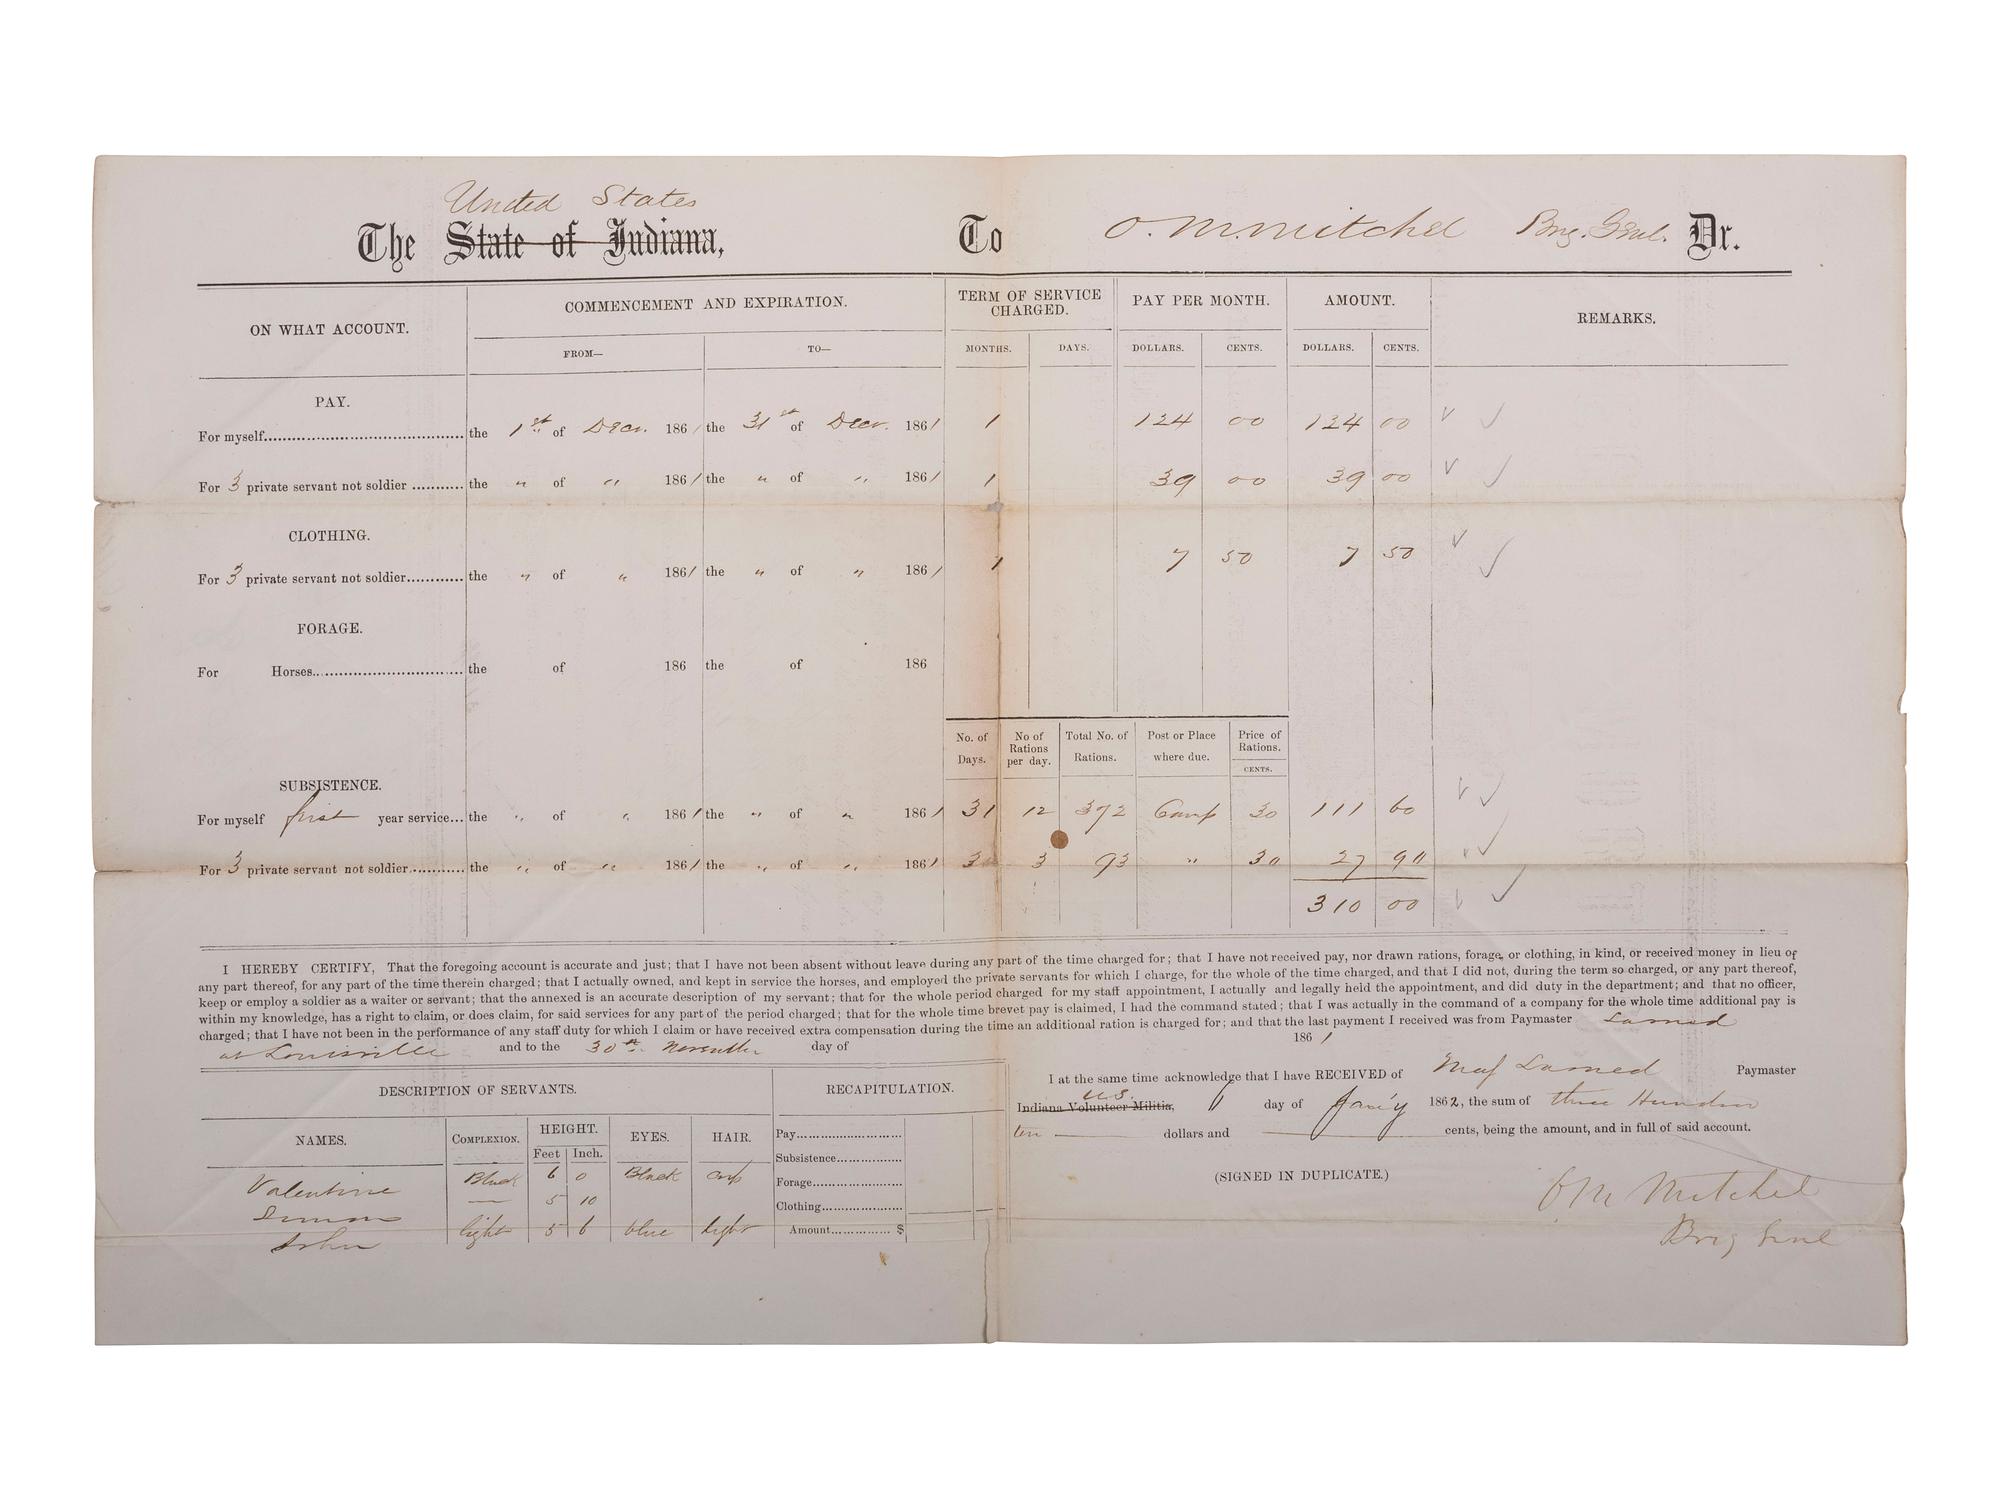 United States
The State of Indiana, To O. M. Mitchel Brig. Genl. Dr.
ON WHAT ACCOUNT. COMMENCEMENT AND EXPIRATION. TERM OF SERVICE CHARGED. PAY PER MONTH. AMOUNT. REMARKS.
FROM— TO— MONTHS. DAYS. DOLLARS. CENTS. DOLLARS. CENTS.
PAY.
For myself the 1st of Decr. 1861 the 31st of Decr. 1861 1 124 00 124 00
For 3 private servant not soldier the " of " 1861 the " of " 1861 1 39 00 39 00
CLOTHING.
For 3 private servant not soldier the " of " 1861 the " of " 1861 1 7 50 7 50
FORAGE.
For Horses the of 186 the of 186
No. of Days. No of Rations per day. Total No. of Rations. Post or Place where due. Price of Rations. CENTS.
SUBSISTENCE.
For myself first year service... the " of " 1861 the " of " 1861 31 12 372 Camp 30 111 60
For 3 private servant not soldier the " of " 1861 the " of " 1861 3 93 " 30 27 90
310 00
I HEREBY CERTIFY, That the foregoing account is accurate and just; that I have not been absent without leave during any part of the time charged for; that I have not received pay, nor drawn rations, forage, or clothing, in kind, or received money in lieu of
any part thereof, for any part of the time therein charged; that I actually owned, and kept in service the horses, and employed the private servants for which I charge, for the whole of the time charged, and that I did not, during the term so charged, or any part thereof,
keep or employ a soldier as a waiter or servant; that the annexed is an accurate description of my servant; that for the whole period charged for my staff appointment, I actually and legally held the appointment, and did duty in the department; and that no officer,
within my knowledge, has a right to claim, or does claim, for said services for any part of the period charged; that for the whole time brevet pay is claimed, I had the command stated; that I was actually in the command of a company for the whole time additional pay is
charged; that I have not been in the performance of any staff duty for which I claim or have received extra compensation during the time an additional ration is charged for; and that the last payment I received was from Paymaster Larned
at Louisville and to the 30th November day of 1861
DESCRIPTION OF SERVANTS. RECAPITULATION.
NAMES. COMPLEXION. HEIGHT. Feet Inch. EYES. HAIR.
Valentine Black 6 0 Black
Simon — 5 10
John light 5 6 blue light
Pay
Subsistence
Forage
Clothing
Amount $
I at the same time acknowledge that I have RECEIVED of Maj Larned Paymaster
U.S.
Indiana Volunteer Militia, 11 day of Jany 1862, the sum of three Hundred
ten dollars and cents, being the amount, and in full of said account.
(SIGNED IN DUPLICATE.)
O M Mitchel
Brig Genl